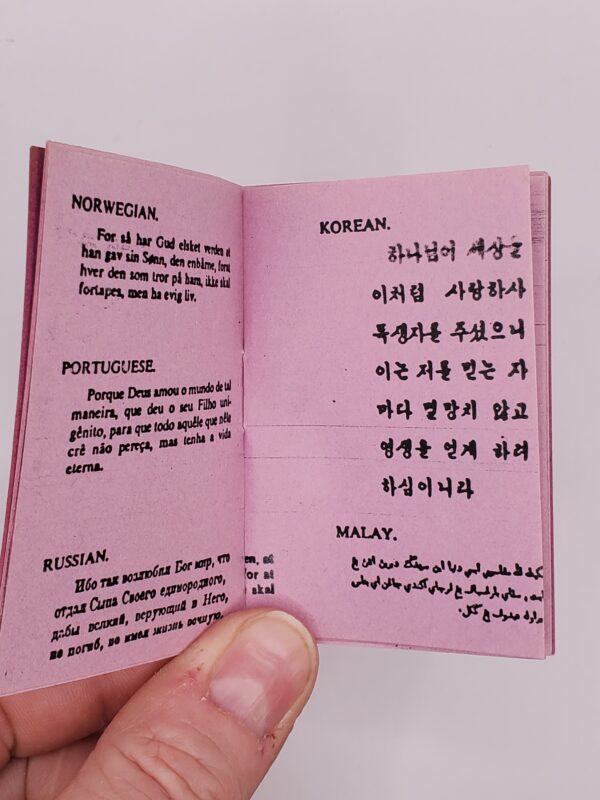 NORWEGIAN.
For så har Gud elsket verden at
han gav sin Sønn, den enbårne, forat
hver den som tror på ham, ikke skal
fortapes, men ha evig liv.
PORTUGUESE.
Porque Deus amou o mundo de tal
maneira, que deu o seu Filho uni-
gênito, para que todo aquêle que nêle
crê não pereça, mas tenha a vida
eterna.
RUSSIAN.
Ибо так возлюбил Бог мир, что
отдал Сына Своего единородного,
дабы всякий, верующий в Него,
не погиб, но имел жизнь вечную.
en, at
for at
skal
KOREAN.
하나님이 세상을
이처럼 사랑하사
독생자를 주셨으니
이는 저를 믿는 자
마다 멸망치 않고
영생을 얻게 하려
하심이니라
MALAY.